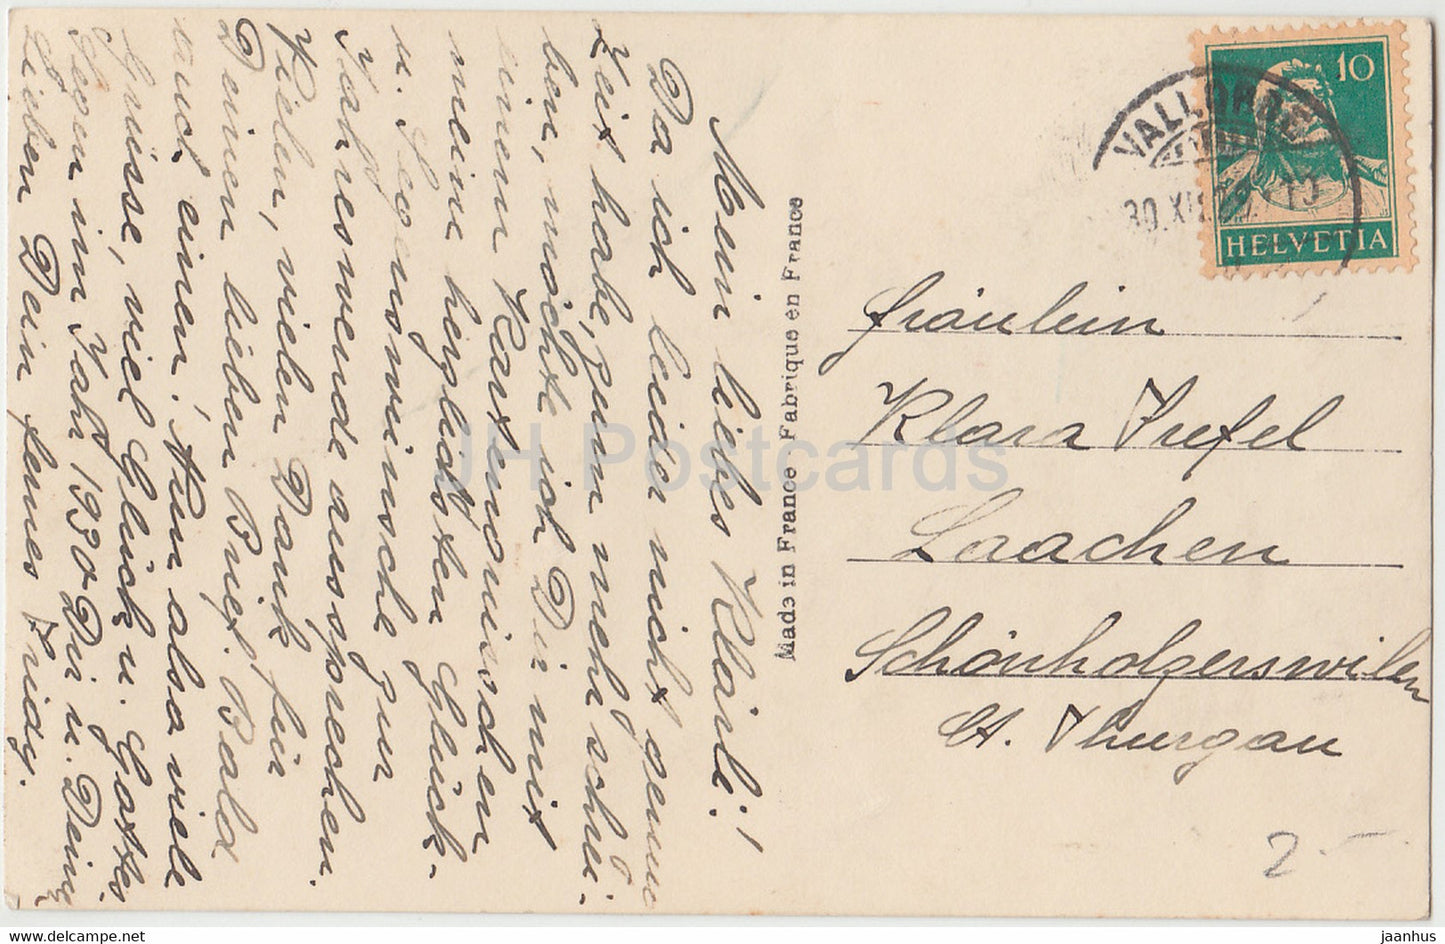 Mein liebes Klärli!
Da ich leider nicht genug
Zeit habe, zum mehr schrei-
ben, möchte ich Dir mit
einem Kartengruss
meine herzlichsten Glück-
u. Segenswünsche zum
Jahreswende aussprechen.
Vielen, vielen Dank für
Deinen lieben Brief. Bald
auch einen! Nun also viele
Grüsse, viel Glück u. Gottes
Segen im Jahr 1930 Dir u. Deinen
Lieben Dein fernes Fridy.
Made in France - Fabrique en France
10
HELVETIA
VALLORBE
30.XII.29. 19
Fräulein
Klara
Laachen
Schönholzerswilen
Ct. Thurgau
2
JH Postcards
www.delcampe.net
jaanhus